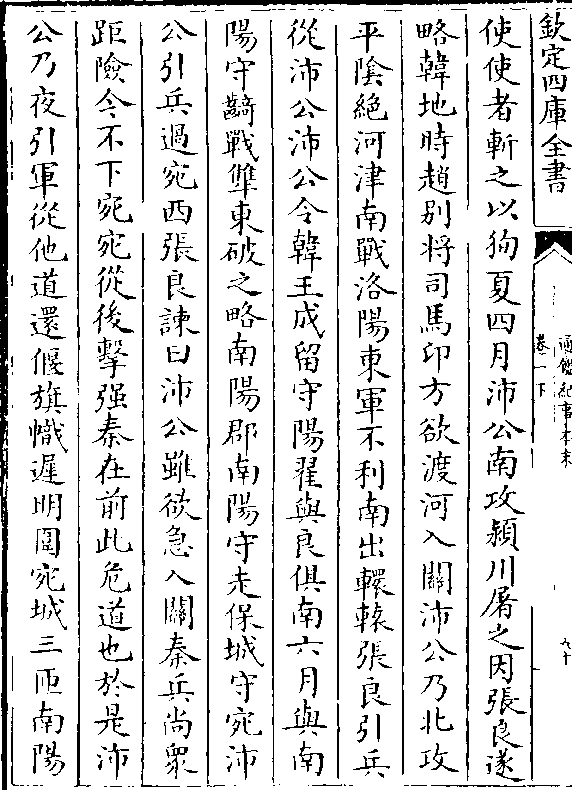 欽定四庫全書
通鑑紀事本末
卷一下
九十
使使者斬之以狥夏四月沛公南攻潁川屠之因張良遂
略韓地時趙别将司馬卬方欲渡河入關沛公乃北攻
平隂絶河津南戰洛陽東軍不利南出轘轅張良引兵
從沛公沛公令韓王成留守陽翟與良俱南六月與南
陽守齮戰犨東破之略南陽郡南陽守走保城守宛沛
公引兵過宛西張良諫曰沛公雖欲急入關秦兵尚衆
距險今不下宛宛從後擊强秦在前此危道也於是沛
公乃夜引軍從他道還偃旗幟遲明圍宛城三匝南陽